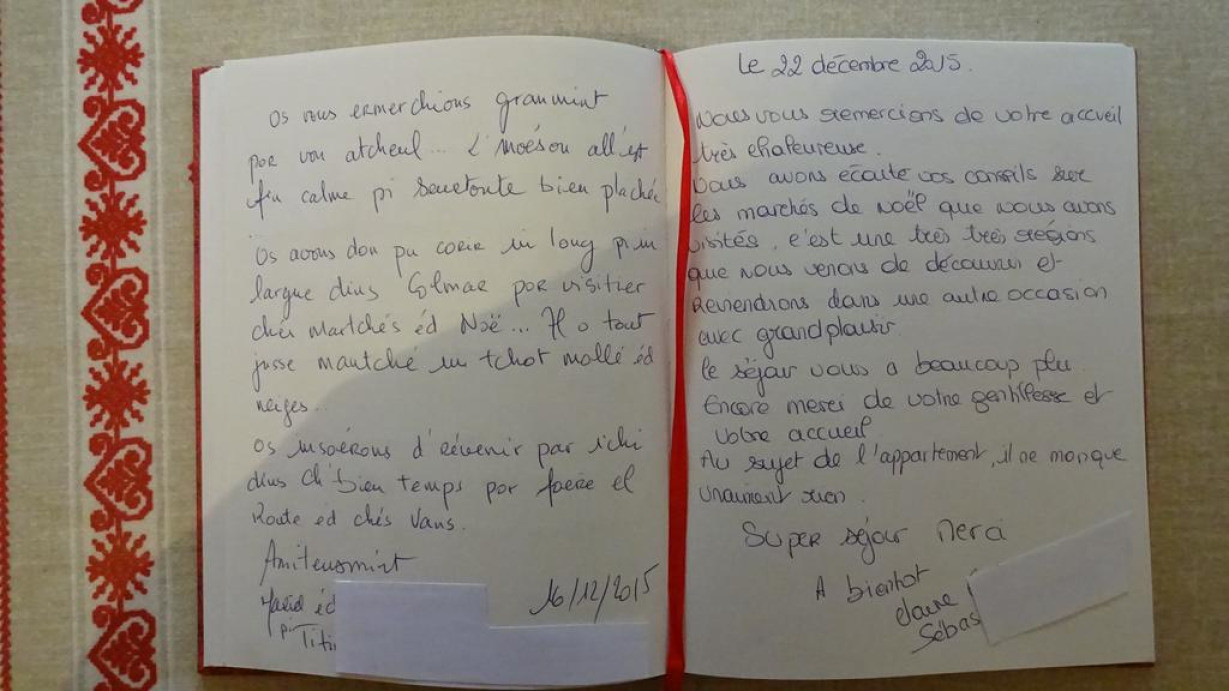 Os vous ermerchions granmint
por vou atcheul... L'Moéson all'est
fin calme pi seurtoute bien plachée
Os avons don pu corir in long pi in
largue dins Colmar por visitier
chés martchés éd Noë... Il o tout
jusse mantché un tchot mollé éd
neiges..
Os insoérons d'révenir par ichi
dins ch'bien temps por faere el
Route ed chés Vans.
Amiteusmint
éd
pi Titi
16/12/2015
Le 22 décembre 2015.
Nous vous remercions de votre accueil
très chaleureuse.
Nous avons écouté vos conseils sur
les marchés de Noël que nous avons
visités, c'est une très très régions
que nous venons de découvrir et
Reviendrons dans une autre occasion
avec grand plaisir.
le séjour nous a beaucoup plu.
Encore merci de votre gentillesse et
votre accueil
Au sujet de l'appartement, il ne manque
vraiment rien.
Super séjour Merci
A bientot
Claire
Sébas